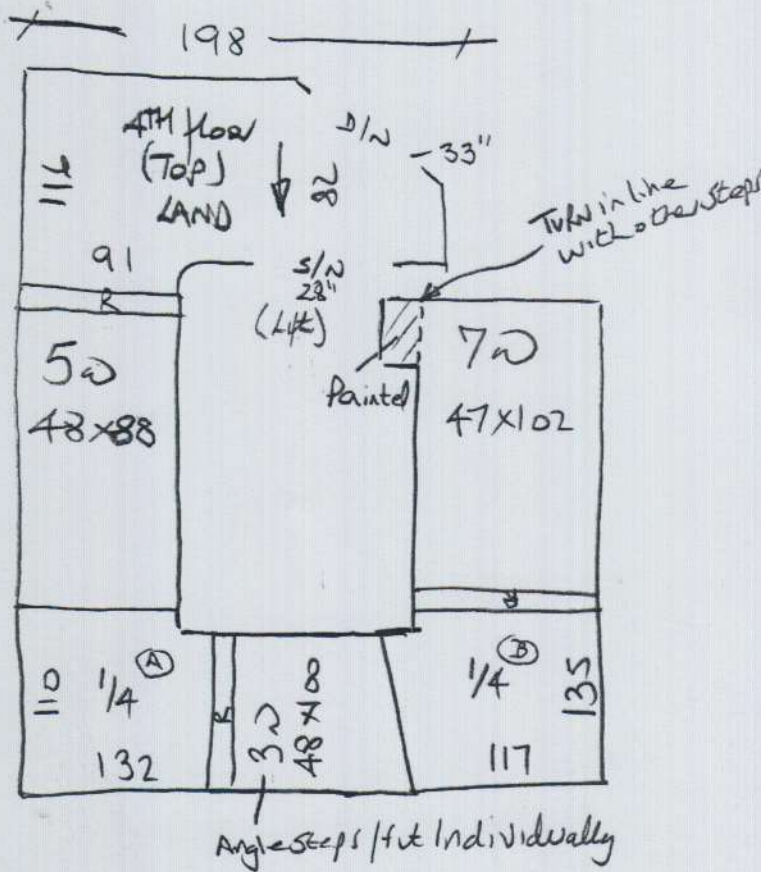 198
4TH floor
(TOP)
LAND
116
82
D/N
33"
91
R
S/N
28"
(Lift)
TURN in line
with other steps
5W
48x88
Painted
7W
47x102
R
110
1/4 A
132
R
3W
48x108
1/4 B
135
117
Angle steps / fit Individually